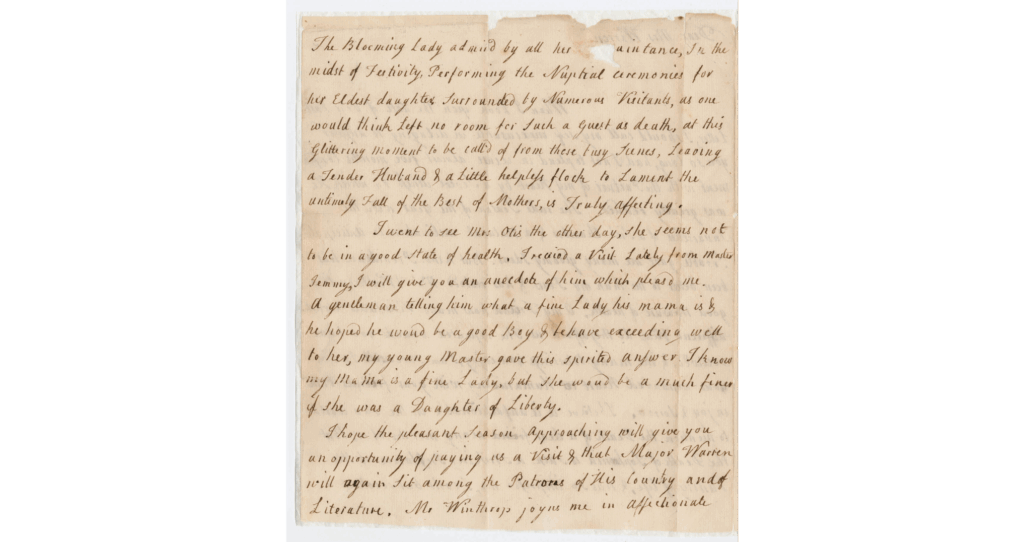 The Blooming Lady admird by all her aintance, In the
midst of Festivity, Performing the Nuptial ceremonies for
her Eldest daughter Surrounded by Numerous Visitants, as one
would think Left no room for Such a Guest as death, at this
Glittering moment to be calld of from these busy Scenes, Leaving
a Tender Husband & a Little helpless flock to Lament the
untimely Fall of the Best of Mothers, is Truly affecting.
I went to see Mrs Otis the other day, she seems not
to be in a good State of health. I reciod a Visit Lately from Master
Jemmy, I will give you an anecdote of him which pleasd me.
A gentleman telling him what a fine Lady his mama is &
he hoped he woud be a good Boy & behave exceeding well
to her, my young Master gave this spirited answer I know
my Mama is a fine Lady, but she woud be a much finer
if she was a Daughter of Liberty.
I hope the pleasant Season approaching will give you
an opportunity of paying us a Visit & that Major Warren
will again Sit among the Patrons of His Country and of
Literature. Mr Winthrop joyns me in affectionate